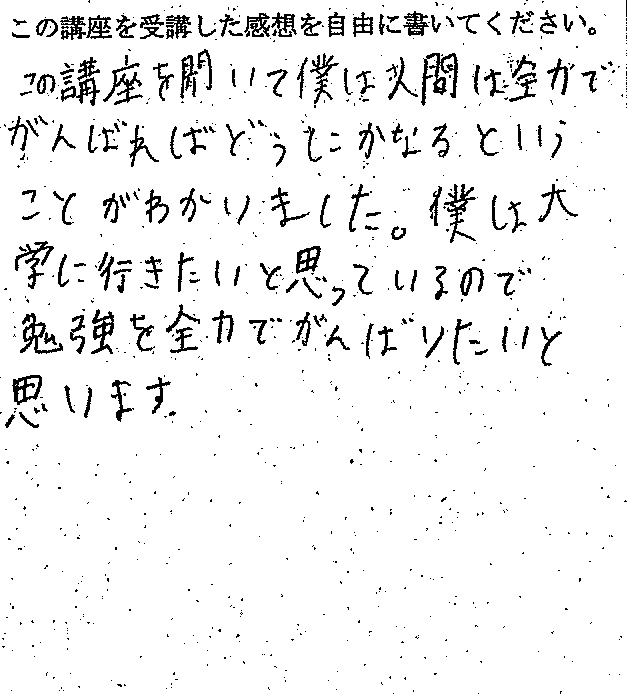 この講座を受講した感想を自由に書いてください。
この講座を聞いて僕は人間は全力で
がんばればどうにかなるという
ことがわかりました。僕は大
学に行きたいと思っているので
勉強を全力でがんばりたいと
思います。